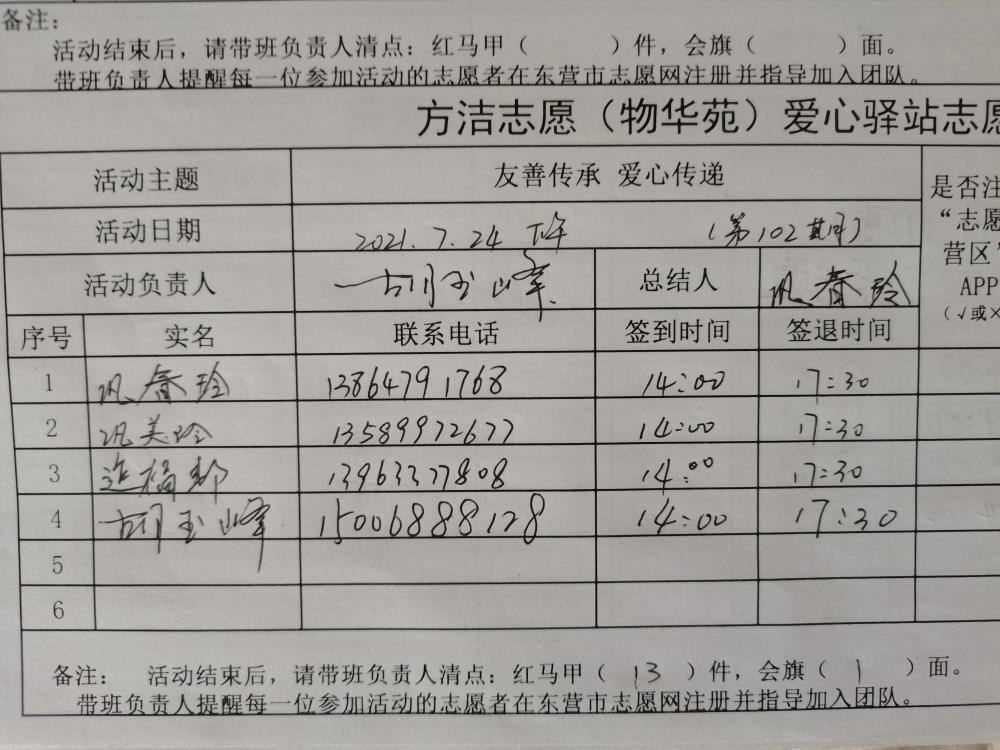 备注：
活动结束后，请带班负责人清点：红马甲（ ）件，会旗（ ）面。
带班负责人提醒每一位参加活动的志愿者在东营市志愿网注册并指导加入团队。
方洁志愿（物华苑）爱心驿站志愿
活动主题 友善传承 爱心传递
是否注
“志愿
营区”
APP
（√或×
活动日期 2021.7.24 下午 （第102期）
活动负责人 胡玉峰 总结人 巩春玲
序号 实名 联系电话 签到时间 签退时间
1 巩春玲 13864791768 14:00 17:30
2 巩美玲 13589972677 14:00 17:30
3 13963377808 14:00 17:30
4 胡玉峰 15006888128 14:00 17:30
5
6
备注： 活动结束后，请带班负责人清点：红马甲（ 13 ）件，会旗（ 1 ）面。
带班负责人提醒每一位参加活动的志愿者在东营市志愿网注册并指导加入团队。